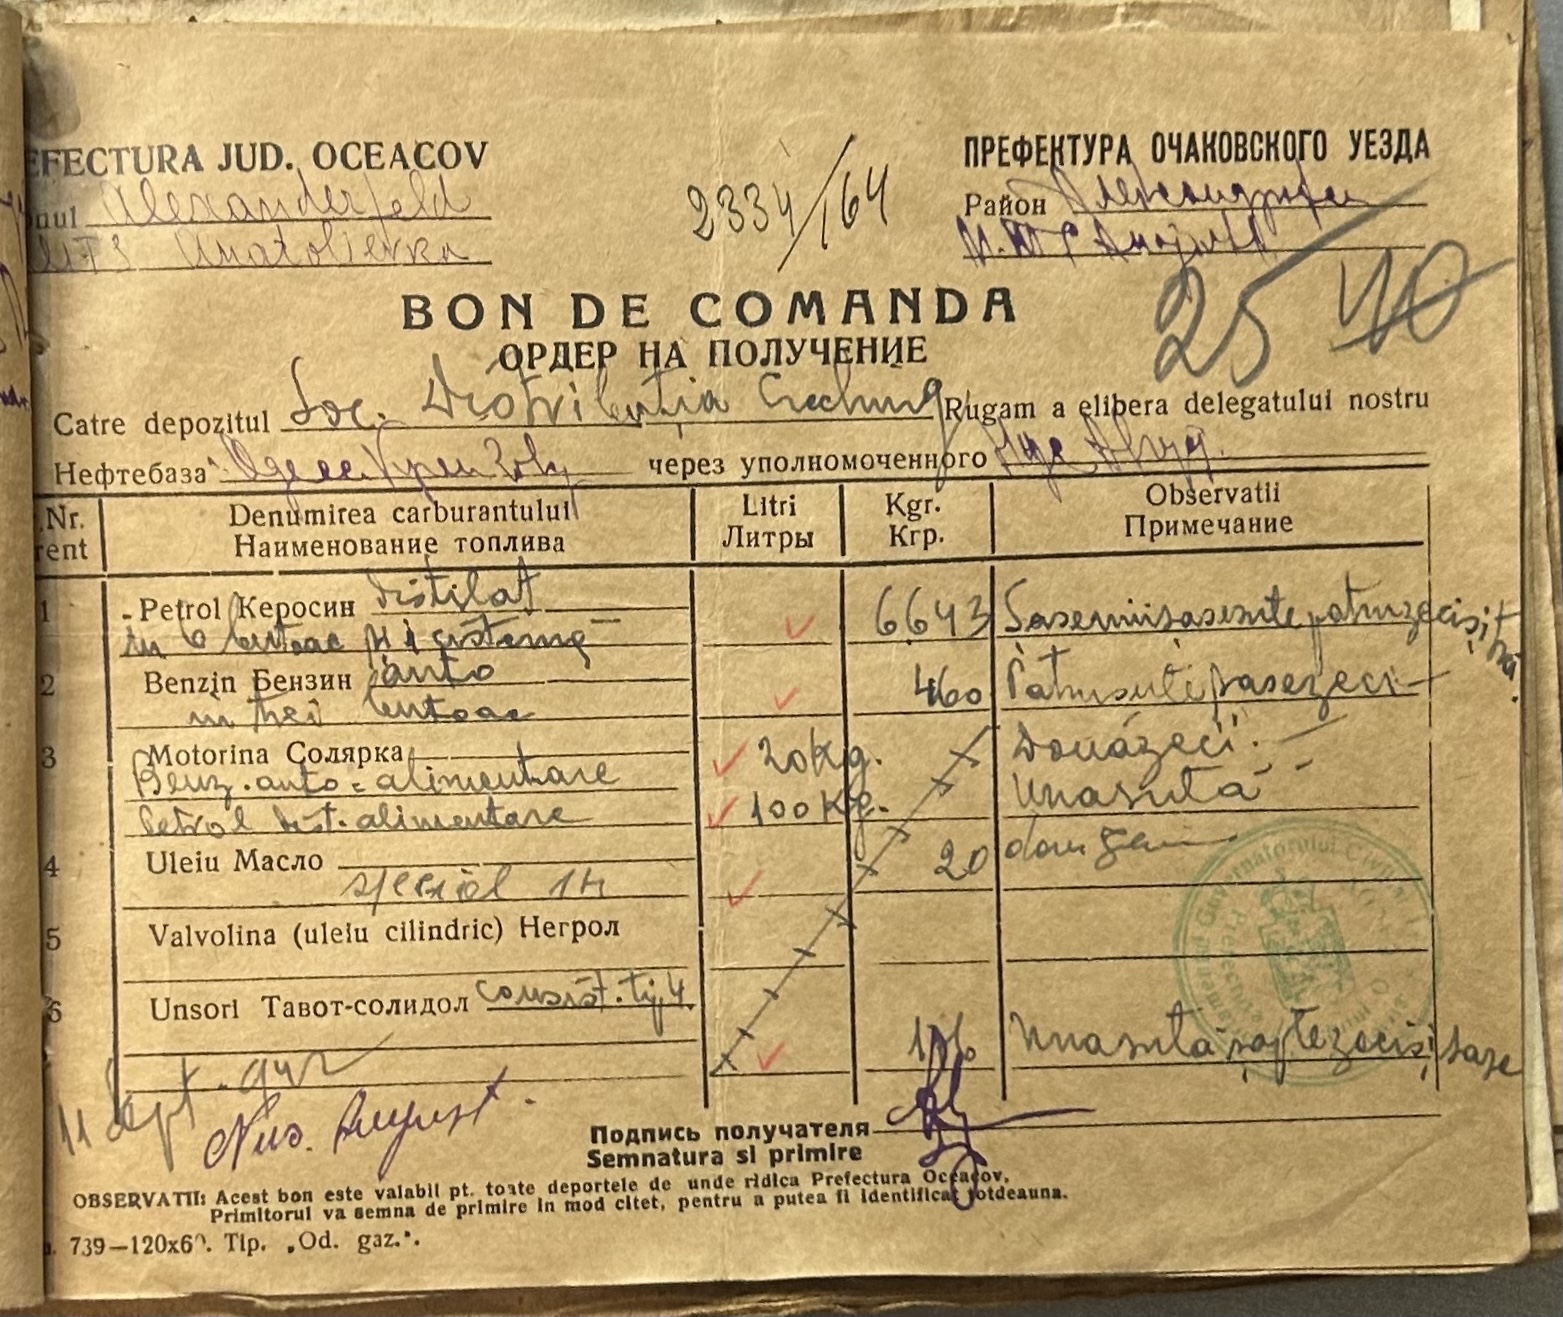 EFECTURA JUD. OCEACOV
ПРЕФЕКТУРА ОЧАКОВСКОГО УЕЗДА
nul Alexanderfeld
2334/164
Район
MTS Anatolievka
25
BON DE COMANDA
ОРДЕР НА ПОЛУЧЕНИЕ
Catre depozitul Soc. Distribuția Rugam a elibera delegatului nostru
Нефтебаза через уполномоченного
Nr. Denumirea carburantului Litri Kgr. Observatii
rent Наименование топлива Литры Кгр. Примечание
1 Petrol Керосин distilat 6643 Șasemiișasesutepatruzecișitrei.
in 6 butoae și 1 cisternă
2 Benzin Бензин auto 460 Patrusuteșasezeci
in trei butoae
3 Motorina Солярка 20 Kg. Douăzeci
Benz. auto = alimentare
Petrol dist. alimentare 100 Kg. Unasută
4 Uleiu Масло 20
special
5 Valvolina (uleiu cilindric) Негрол
6 Unsori Тавот-солидол consist. tip 4
176 Unasută șaptezeciși șase
11 Sept. 942
Nus. August
Подпись получателя
Semnatura si primire
OBSERVATII: Acest bon este valabil pt. toate deportele de unde ridica Prefectura Oceacov,
Primitorul va semna de primire in mod citet, pentru a putea fi identificat totdeauna.
739—120x6 . Tip. „Od. gaz.".